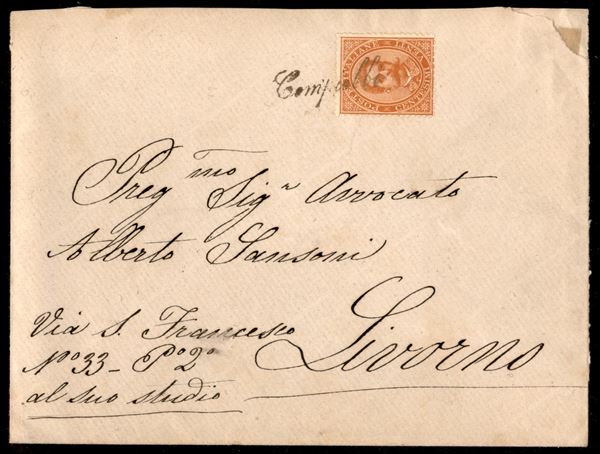 POSTE ITALIANE
CENTESIMI
Preg mo Sig r Avvocato
Alberto Sansoni
Via S. Francesco
No 33 - Po 2o
al suo studio
Livorno